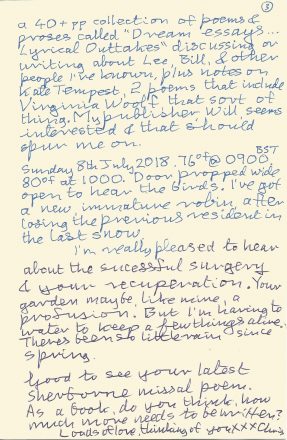 ③
a 40+ pp collection of poems &
proses called "Dream essays...
Lyrical Outtakes" discussing or
writing about Lee, Bill, & other
people I've known, plus notes on
Kate Tempest, 2 poems that include
Virginia Woolf that sort of
thing. My publisher Will seems
interested & that should
spur me on.
BST
Sunday 8th July 2018. 76°f @ 0900.
80°f at 1000. Door propped wide
open to hear the birds. I've got
a new immature robin, after
losing the previous resident in
the last snow.
I'm really pleased to hear
about the sucessful surgery
& your recuperation. Your
garden maybe, like mine, a
profusion. But I'm having to
water to keep a few things alive.
There's been so little rain since
spring.
Good to see your latest
Sherborne missal poem.
As a book, do you think, how
much more needs to be written?
Loads of love, thinking of you XXX Chris